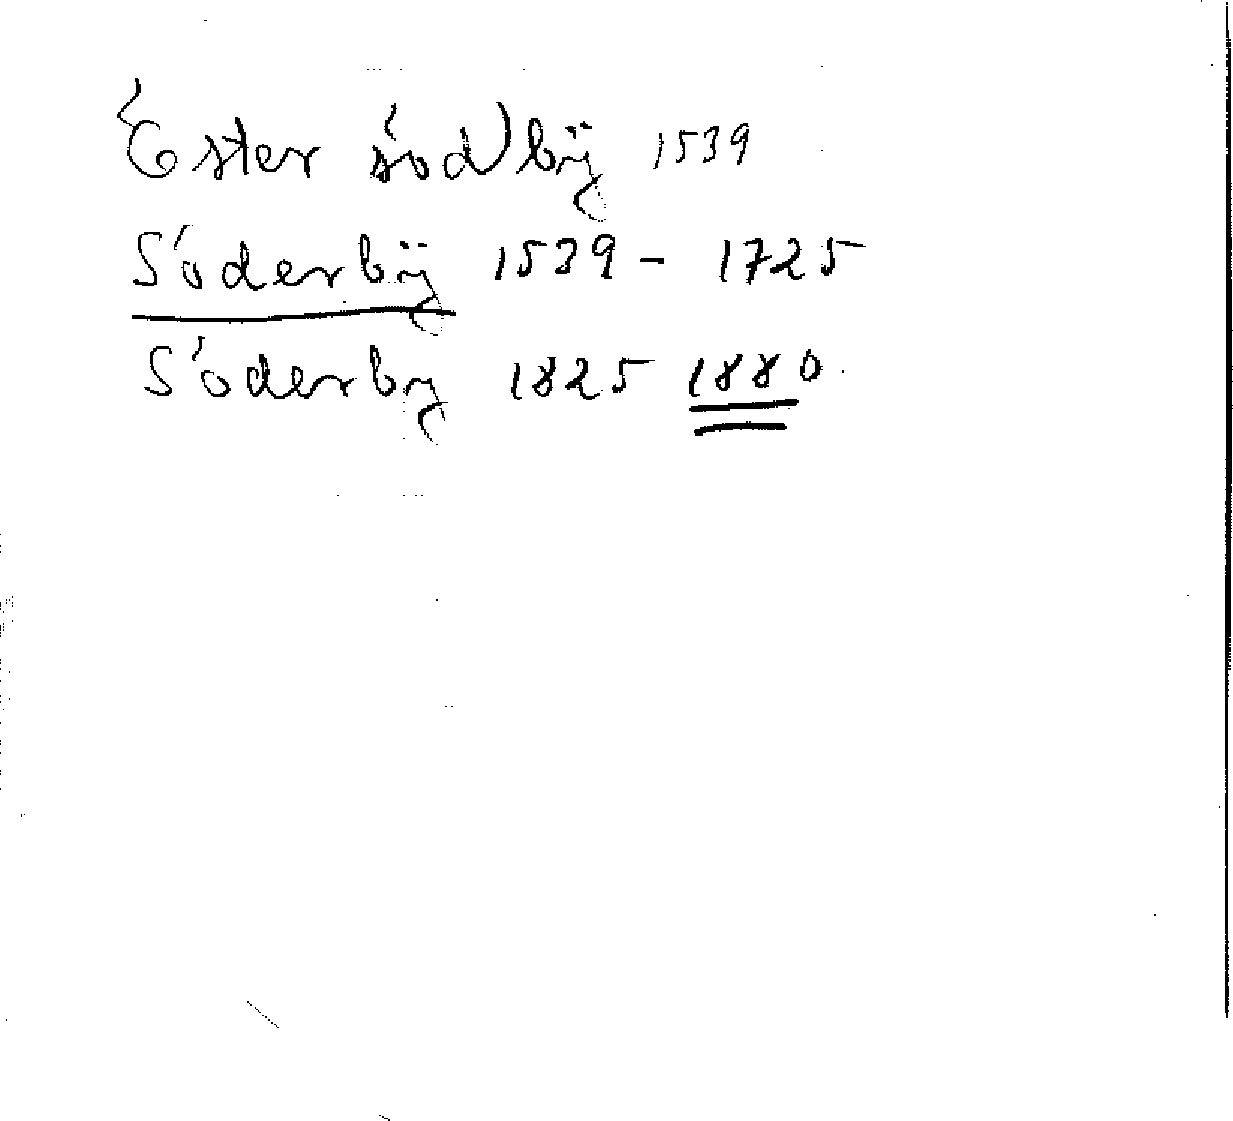 Öster södbÿ 1539
Söderbÿ 1539 - 1725
Söderby 1825 1880